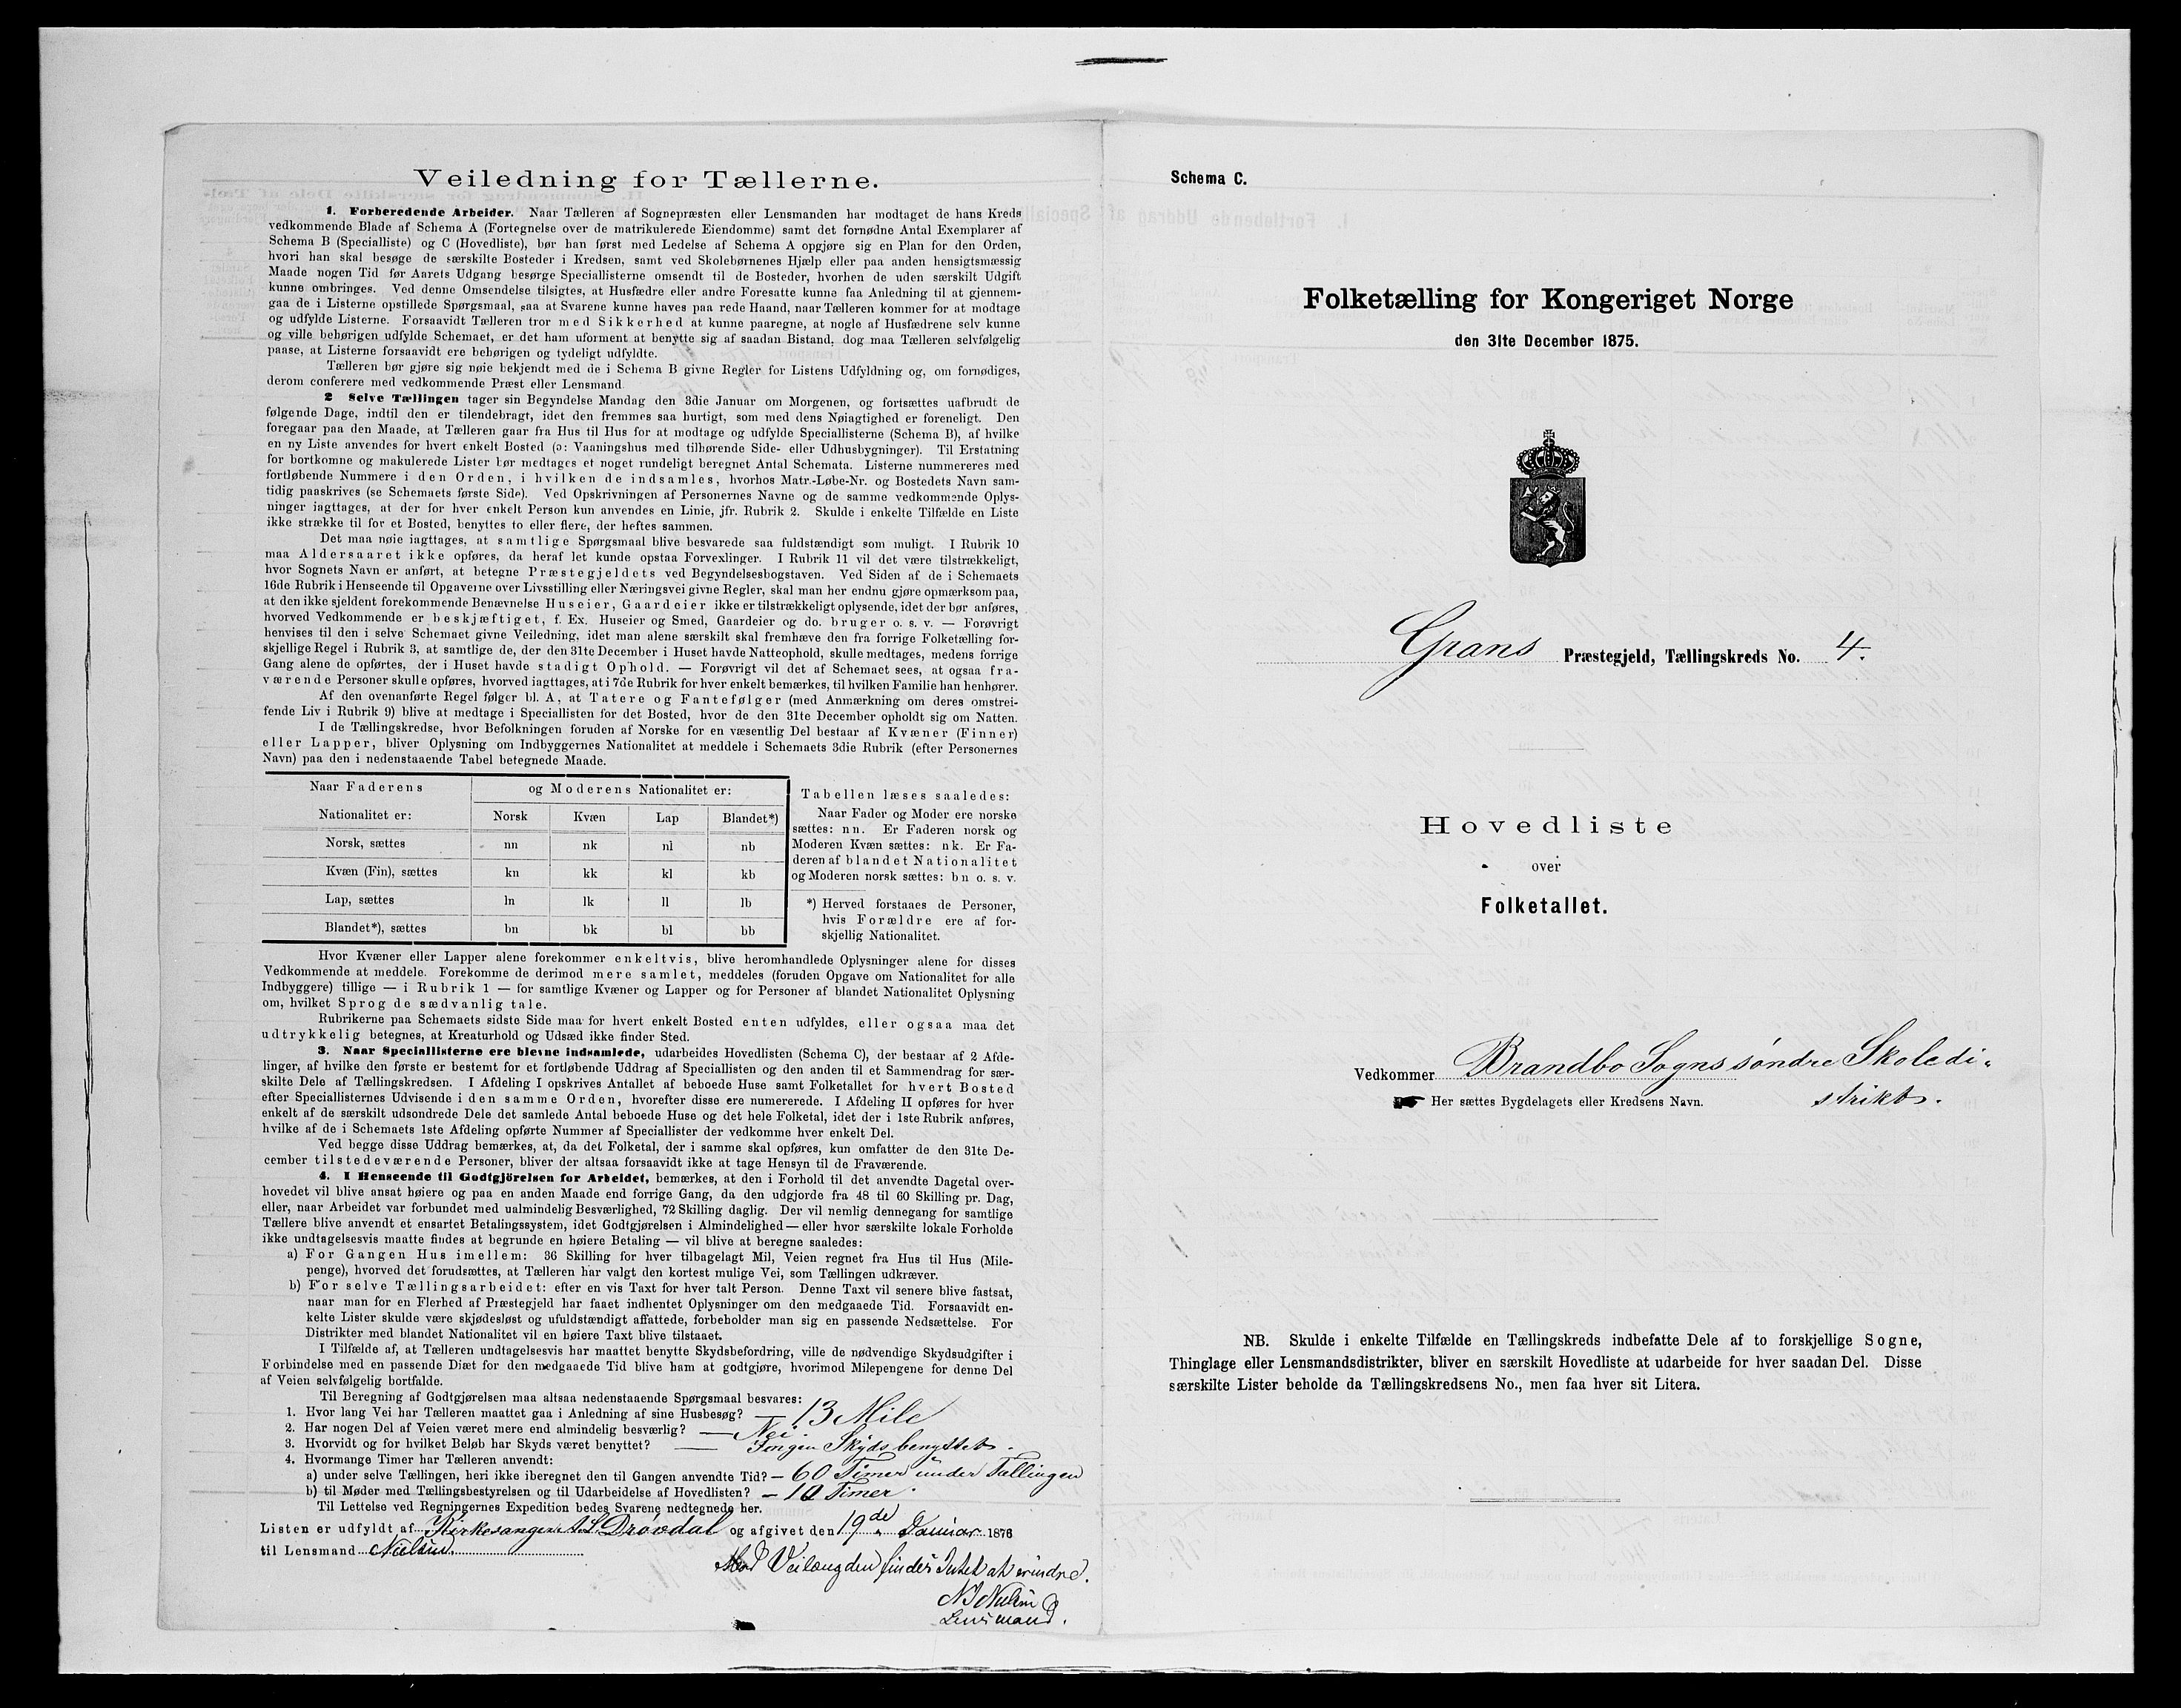 Veiledning for Tællerne.
1. Forberedende Arbeider. Naar Tælleren af Sognepræsten eller Lensmanden har modtaget de hans Kreds
vedkommende Blade af Schema A (Fortegnelse over de matrikulerede Eiendomme) samt det fornødne Antal Exemplarer af
Schema B (Specialliste) og C (Hovedliste), bør han først med Ledelse af Schema A opgjøre sig en Plan for den Orden,
hvori han skal besøge de særskilte Bosteder i Kredsen, samt ved Skolebørnenes Hjælp eller paa anden hensigtsmæssig
Maade nogen Tid før Aarets Udgang besørge Speciallisterne omsendt til de Bosteder, hvorhen de uden særskilt Udgift
kunne ombringes. Ved denne Omsendelse tilsigtes, at Husfædre eller andre Foresatte kunne faa Anledning til at gjennem-
gaa de i Listerne opstillede Spørgsmaal, saa at Svarene kunne haves paa rede Haand, naar Tælleren kommer for at modtage
og udfylde Listerne. Forsaavidt Tælleren tror med Sikkerhed at kunne paaregne, at nogle af Husfædrene selv kunne
og ville behørigen udfylde Schemaet, er det ham uforment at benytte sig af saadan Bistand, dog maa Tælleren selvfølgelig
paase, at Listerne forsaavidt ere behørigen og tydeligt udfyldte.
Tælleren bør gjøre sig nøie bekjendt med de i Schema B givne Regler for Listens Udfyldning og, om fornødiges,
derom conferere med vedkommende Præst eller Lensmand
2 Selve Tællingen tager sin Begyndelse Mandag den 3die Januar om Morgenen, og fortsættes uafbrudt de
følgende Dage, indtil den er tilendebragt, idet den fremmes saa hurtigt, som med dens Nøiagtighed er foreneligt. Den
foregaar paa den Maade, at Tælleren gaar fra Hus til Hus for at modtage og udfylde Speciallisterne (Schema B), af hvilke
en ny Liste anvendes for hvert enkelt Bosted (ɔ: Vaaningshus med tilhørende Side- eller Udhusbygninger). Til Erstatning
for bortkomne og makulerede Lister bør medtages et noget rundeligt beregnet Antal Schemata. Listerne nummereres med
fortløbende Nummere i den Orden, i hvilken de indsamles, hvorhos Matr.-Løbe-Nr. og Bostedets Navn sam-
tidig paaskrives (se Schemaets første Side). Ved Opskrivningen af Personernes Navne og de samme vedkommende Oplys-
ninger iagttages, at der for hver enkelt Person kun anvendes en Linie, jfr. Rubrik 2. Skulde i enkelte Tilfælde en Liste
ikke strække til for et Bosted, benyttes to eller flere, der heftes sammen.
Det maa nøie iagttages, at samtlige Spørgsmaal blive besvarede saa fuldstændigt som muligt. I Rubrik 10
maa Aldersaaret ikke opføres, da heraf let kunde opstaa Forvexlinger. I Rubrik 11 vil det være tilstrækkeligt,
hvor Sognets Navn er anført, at betegne Præstegjeldets ved Begyndelsesbogstaven. Ved Siden af de i Schemaets
16de Rubrik i Henseende til Opgaverne over Livsstilling eller Næringsvei givne Regler, skal man her endnu gjøre opmærksom paa,
at den ikke sjeldent forekommende Benævnelse Huseier, Gaardeier ikke er tilstrækkeligt oplysende, idet der bør anføres,
hvorved Vedkommende er beskjæftiget, f. Ex. Huseier og Smed, Gaardeier og do. bruger o. s. v. — Forøvrigt
henvises til den i selve Schemaet givne Veiledning, idet man alene særskilt skal fremhæve den fra forrige Folketælling for-
skjellige Regel i Rubrik 3, at samtlige de, der den 31te December i Huset havde Natteophold, skulle medtages, medens forrige
Gang alene de opførtes, der i Huset havde stadigt Ophold. — Forøvrigt vil det af Schemaet sees, at ogsaa fra-
værende Personer skulle opføres, hvorved iagttages, at i 7de Rubrik for hver enkelt bemærkes, til hvilken Familie han henhører.
Af den ovenanførte Regel følger bl. A, at Tatere og Fantefølger (med Anmærkning om deres omstrei-
fende Liv i Rubrik 9) blive at medtage i Speciallisten for det Bosted, hvor de den 31te December opholdt sig om Natten.
I de Tællingskredse, hvor Befolkningen foruden af Norske for en væsentlig Del bestaar af Kvæner (Finner)
eller Lapper, bliver Oplysning om Indbyggernes Nationalitet at meddele i Schemaets 3die Rubrik (efter Personernes
Navn) paa den i nedenstaaende Tabel betegnede Maade.
Naar Faderens og Moderens Nationalitet er:
Nationalitet er: Norsk Kvæn Lap Blandet*)
Norsk, sættes nn nk nl nb
Kvæn (Fin), sættes kn kk kl kb
Lap, sættes ln lk ll lb
Blandet*), sættes bn bk bl bb
Tabellen læses saaledes:
Naar Fader og Moder ere norske
sættes: nn. Er Faderen norsk og
Moderen Kvæn sættes: nk. Er Fa-
deren af blandet Nationalitet
og Moderen norsk sættes: bn o. s. v.
*) Herved forstaaes de Personer,
hvis Forældre ere af for-
skjellig Nationalitet.
Hvor Kvæner eller Lapper alene forekommer enkeltvis, blive heromhandlede Oplysninger alene for disses
Vedkommende at meddele. Forekomme de derimod mere samlet, meddeles (foruden Opgave om Nationalitet for alle
Indbyggere) tillige — i Rubrik 1 — for samtlige Kvæner og Lapper og for Personer af blandet Nationalitet Oplysning
om, hvilket Sprog de sædvanlig tale.
Rubrikerne paa Schemaets sidste Side maa for hvert enkelt Bosted enten udfyldes, eller ogsaa maa det
udtrykkelig betegnes, at Kreaturhold og Udsæd ikke finder Sted.
3. Naar Speciallisterne ere blevne indsamlede, udarbeides Hovedlisten (Schema C), der bestaar af 2 Afde-
linger, af hvilke den første er bestemt for et fortløbende Uddrag af Speciallisten og den anden til et Sammendrag for sær-
skilte Dele af Tællingskredsen. I Afdeling I opskrives Antallet af beboede Huse samt Folketallet for hvert Bosted
efter Speciallisternes Udvisende i den samme Orden, hvorefter disse ere numererede. I Afdeling II opføres for hver
enkelt af de særskilt udsondrede Dele det samlede Antal beboede Huse og det hele Folketal, idet der i 1ste Rubrik anføres,
hvilke af de i Schemaets 1ste Afdeling opførte Nummer af Speciallister der vedkomme hver enkelt Del.
Ved begge disse Uddrag bemærkes, at, da det Folketal, der i samme skal opføres, kun omfatter de den 31te De-
cember tilstedeværende Personer, bliver der altsaa forsaavidt ikke at tage Hensyn til de Fraværende.
4. I Henseende til Godtgjörelsen for Arbeidet, bemærkes, at den i Forhold til det anvendte Dagetal over-
hovedet vil blive ansat høiere og paa en anden Maade end forrige Gang, da den udgjorde fra 48 til 60 Skilling pr. Dag,
eller, naar Arbeidet var forbundet med ualmindelig Besværlighed, 72 Skilling daglig. Der vil nemlig dennegang for samtlige
Tællere blive anvendt et ensartet Betalingssystem, idet Godtgjørelsen i Almindelighed — eller hvor særskilte lokale Forholde
ikke undtagelsesvis maatte findes at begrunde en høiere Betaling — vil blive at beregne saaledes:
a) For Gangen Hus imellem: 36 Skilling for hver tilbagelagt Mil, Veien regnet fra Hus til Hus (Mile-
penge), hvorved det forudsættes, at Tælleren har valgt den kortest mulige Vei, som Tællingen udkræver.
b) For selve Tællingsarbeidet: efter en vis Taxt for hver talt Person. Denne Taxt vil senere blive fastsat,
naar man for en Flerhed af Præstegjeld har faaet indhentet Oplysninger om den medgaaede Tid. Forsaavidt en-
kelte Lister skulde være skjødesløst og ufuldstændigt affattede, forbeholder man sig en passende Nedsættelse. For
Distrikter med blandet Nationalitet vil en høiere Taxt blive tilstaaet.
I Tilfælde af, at Tælleren undtagelsesvis har maattet benytte Skydsbefordring, ville de nødvendige Skydsudgifter i
Forbindelse med en passende Diæt for den medgaaede Tid blive ham at godtgjøre, hvorimod Milepengene for denne Del
af Veien selvfølgelig bortfalde.
Til Beregning af Godtgjørelsen maa altsaa nedenstaaende Spørgsmaal besvares:
1. Hvor lang Vei har Tælleren maattet gaa i Anledning af sine Husbesøg? — 13 Mile
2. Har nogen Del af Veien været mere end almindelig besværlig? — Nei.
3. Hvorvidt og for hvilket Beløb har Skyds været benyttet? — Ingen Skyds benyttet.
4. Hvormange Timer har Tælleren anvendt:
a) under selve Tællingen, heri ikke iberegnet den til Gangen anvendte Tid? — 60 Timer under Tællingen
b) til Møder med Tællingsbestyrelsen og til Udarbeidelse af Hovedlisten? — 10 Timer.
Til Lettelse ved Regningernes Expedition bedes Svarene nedtegnede her.
Listen er udfyldt af Kirkesanger A. S. Drövdal og afgivet den 19de Januar 1876
til Lensmand Nielsen.
Mod Veilængden findes Intet at erindre.
Lensmand.
Schema C.
Folketælling for Kongeriget Norge
den 31te December 1875.
Grans Præstegjeld, Tællingskreds No. 4.
Hovedliste
over
Folketallet.
Vedkommer Brandbo Sogns söndre Skoledi-
strikt.
Her sættes Bygdelagets eller Kredsens Navn.
NB. Skulde i enkelte Tilfælde en Tællingskreds indbefatte Dele af to forskjellige Sogne,
Thinglage eller Lensmandsdistrikter, bliver en særskilt Hovedliste at udarbeide for hver saadan Del. Disse
særskilte Lister beholde da Tællingskredsens No., men faa hver sit Litera.